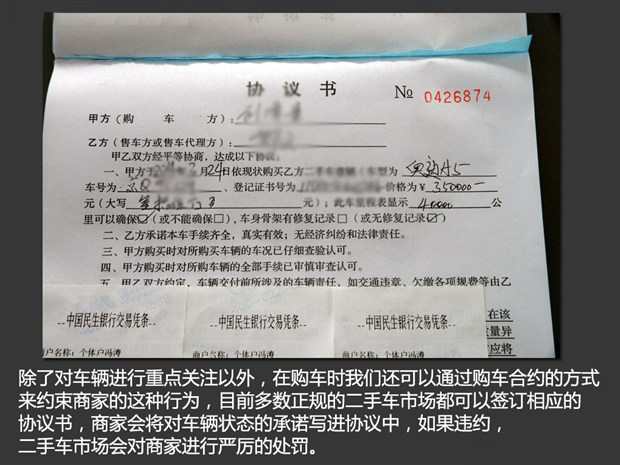 协 议 书 № 0426874
甲方(购 车 方):
乙方(售车方或售车代理方):
甲乙双方经平等协商,达成以下协议:
一、甲方于 月24日依现状购买乙方二手车壹辆(车型为奥迪A5
车号为 、登记证书号为 价格为¥350000-
元(大写 元);此车里程表显示40000公
里可以确保☑(或不能确保□),车身骨架有修复记录□(或无修复记录☑)
二、乙方承诺本车手续齐全,真实有效;无经济纠纷和法律责任。
三、甲方购买时对所购买车辆的车况已仔细查验认可。
四、甲方购买时对所购车辆的全部手续已审慎审查认可。
五、甲乙双方约定,车辆交付前所涉及的车辆责任,如交通违章、欠缴各项规费等由乙
在该
--中国民生银行交易凭条-- --中国民生银行交易凭条-- --中国民生银行交易凭条-- 量异
应将
商户名称:个体户冯涛 商户名称:个体户冯涛 商户名称:个体户冯涛
除了对车辆进行重点关注以外,在购车时我们还可以通过购车合约的方式
来约束商家的这种行为,目前多数正规的二手车市场都可以签订相应的
协议书,商家会将对车辆状态的承诺写进协议中,如果违约,
二手车市场会对商家进行严厉的处罚。